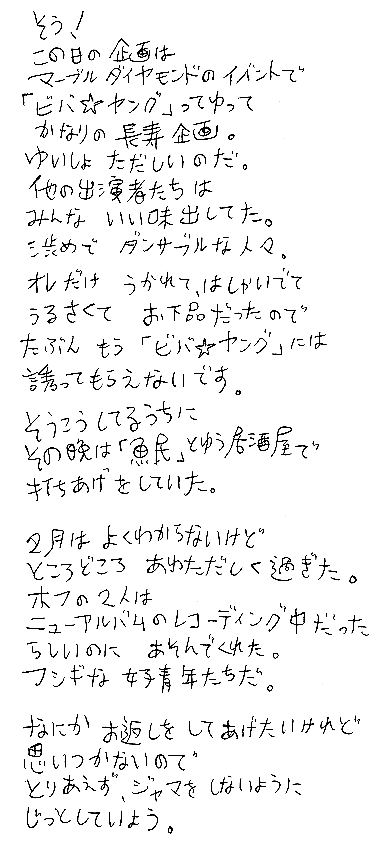 そう!
この日の企画は
マーブルダイヤモンドのイベントで
「ビバ☆ヤング」ってゆって
かなりの長寿企画。
ゆいしょただしいのだ。
他の出演者たちは
みんないい味出してた。
渋めでダンサブルな人々。
オレだけうかれて、はしゃいでて
うるさくてお下品だったので
たぶんもう「ビバ☆ヤング」には
誘ってもらえないです。
そうこうしてるうちに
その晩は「魚民」とゆう居酒屋で
打ちあげをしていた。
2月はよくわからないけど
ところどころあわただしく過ぎた。
ホフの2人は
ニューアルバムのレコーディング中だった
らしいのにあそんでくれた。
フシギな好青年たちだ。
なにかお返しをしてあげたいけれど
思いつかないので
とりあえず、ジャマをしないように
じっとしていよう。